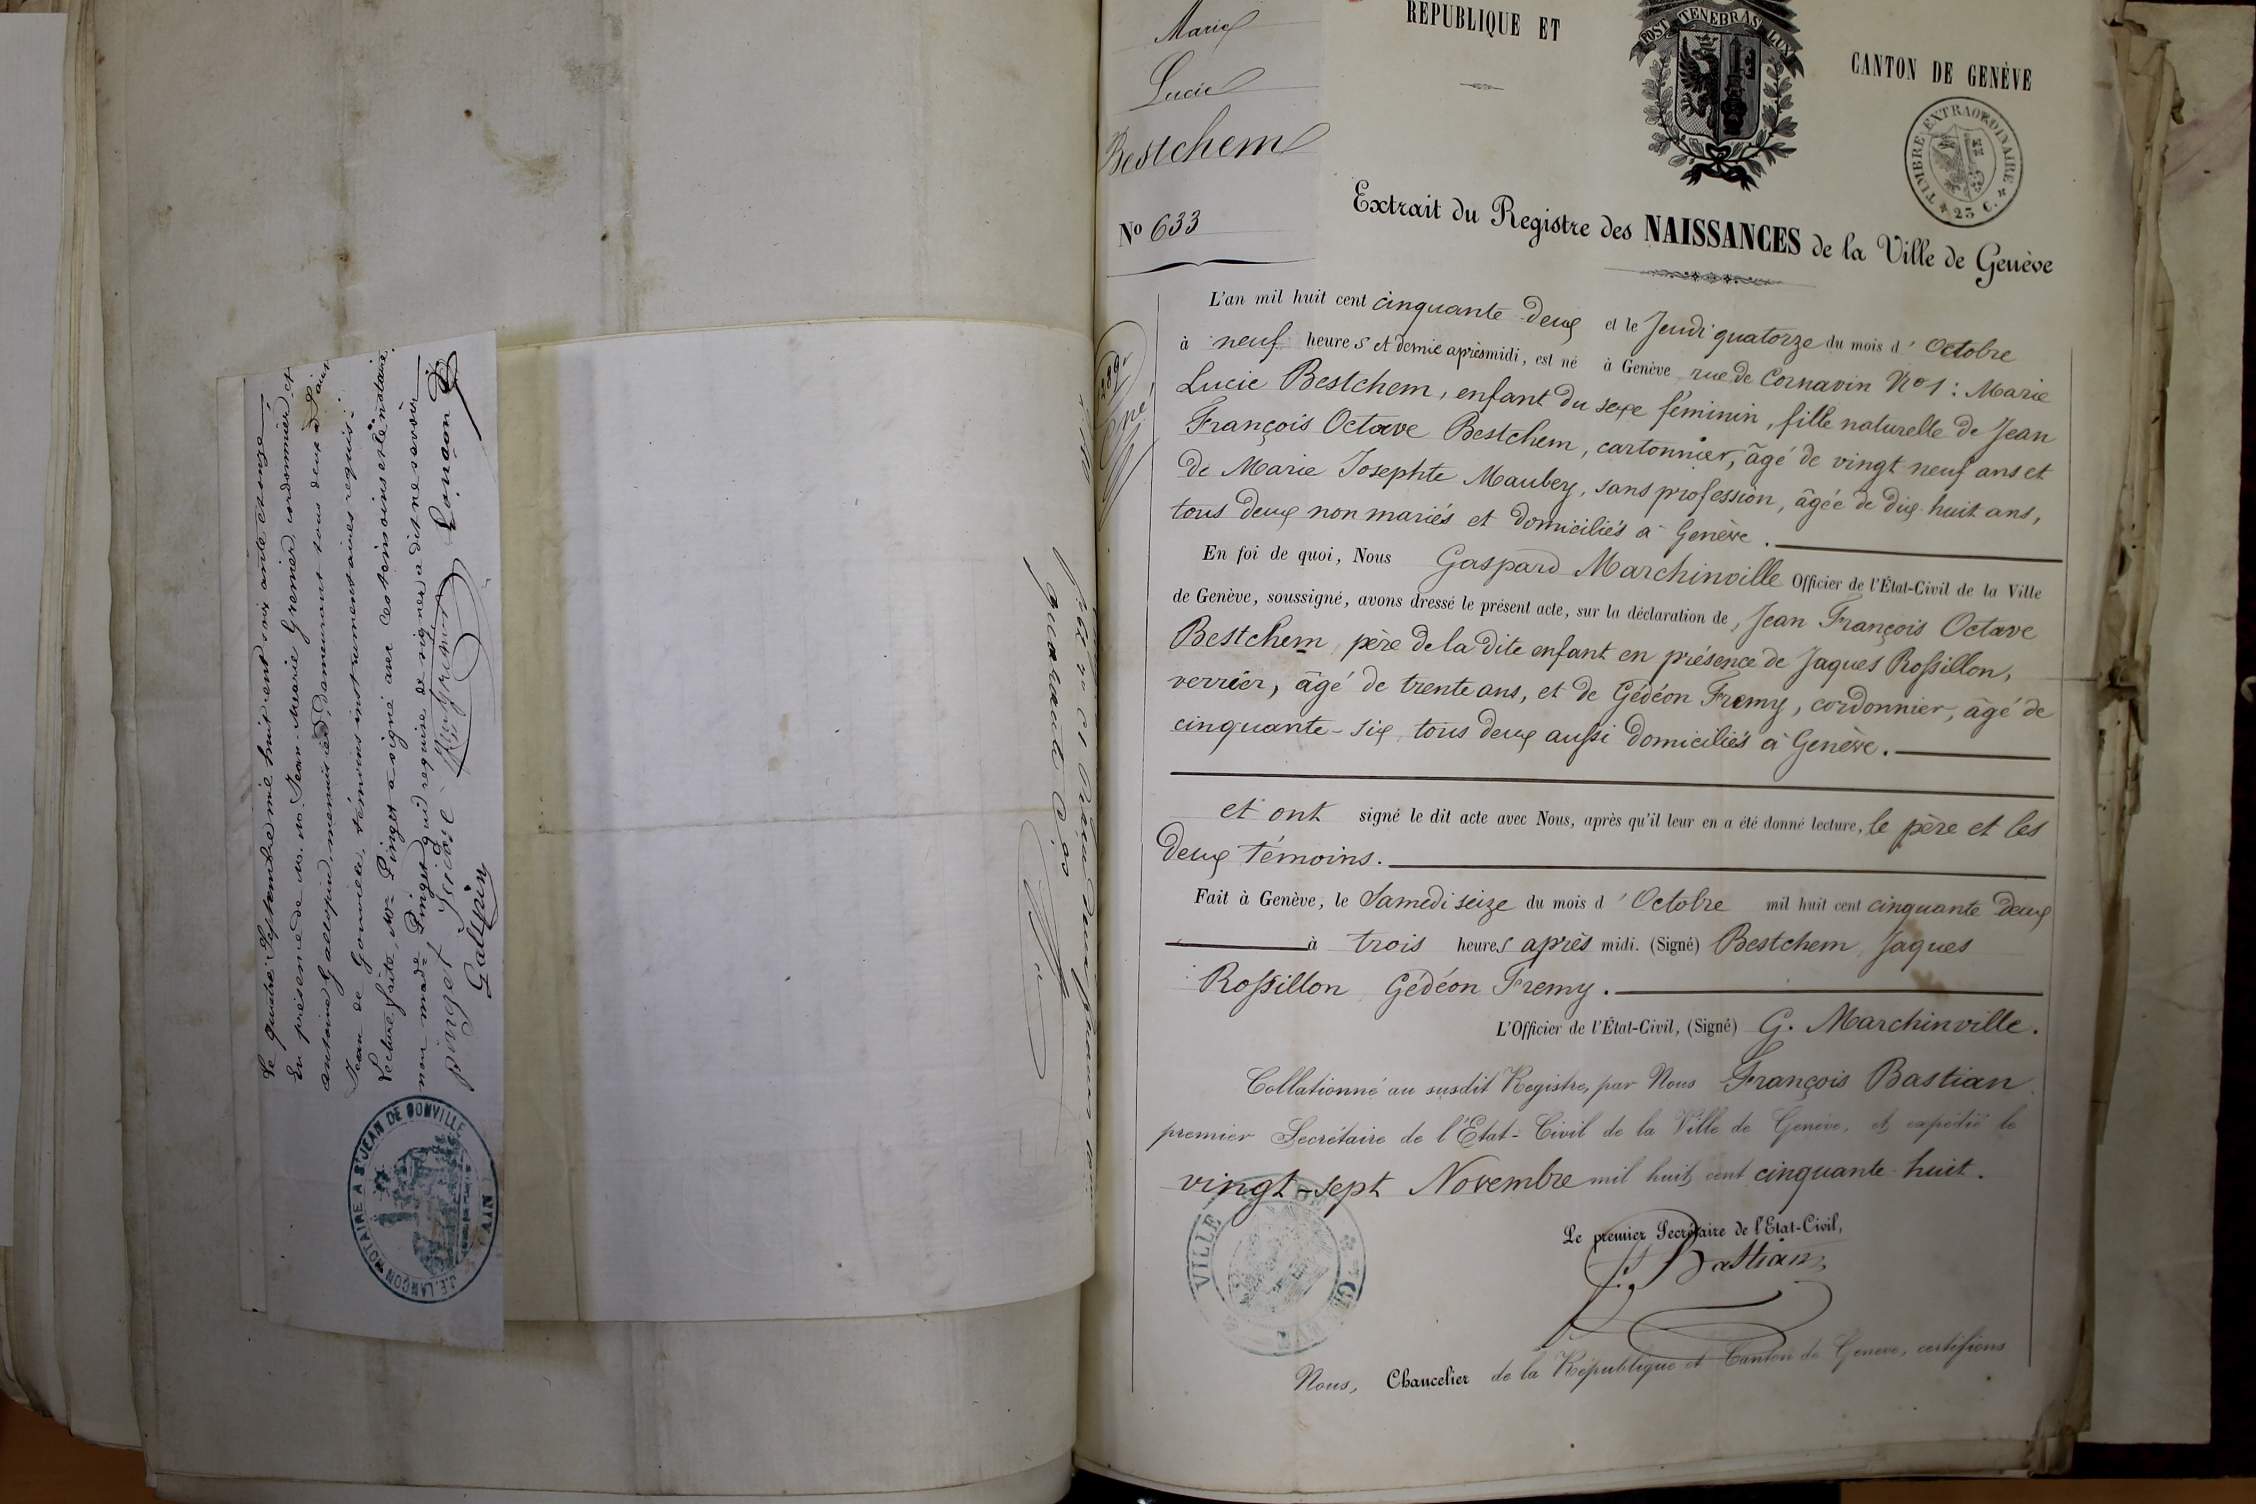 Le quatre Septembre mil huit cent soixante et onze
En présence de M. M. Jean Marie Grenier, cordonnier et
antoine Gallepin, menuisier, demeurant tous deux à Saint
Jean de Gonville, témoins instrumentaires requis.
Lecture faite, Mr Pinget a signé avec les témoins et le notaire,
non made Pinget qui requise de signer a dit ne savoir
pinget
Galepin
Lançon
J.F. LANÇON NOTAIRE A ST JEAN DE GONVILLE
AIN
Marie
Lucie
Bestchem
No 633
REPUBLIQUE ET
CANTON DE GENÈVE
POST TENEBRAS LUX
TIMBRE EXTRAORDINAIRE
25 C.
Extrait du Registre des NAISSANCES de la Ville de Genève
L'an mil huit cent cinquante deux et le Jeudi quatorze du mois d'Octobre
à neuf heures et demie après midi, est né à Genève rue de Cornavin No 1 : Marie
Lucie Bestchem, enfant du sexe féminin, fille naturelle de Jean
François Octave Bestchem, cartonnier, âgé de vingt neuf ans et
de Marie Josephte Maubey, sans profession, âgée de dix huit ans,
tous deux non mariés et domiciliés à Genève.
En foi de quoi, Nous Gaspard Marchinville Officier de l'État-Civil de la Ville
de Genève, soussigné, avons dressé le présent acte, sur la déclaration de, Jean François Octave
Bestchem, père de la dite enfant en présence de Jaques Rossillon,
verrier, âgé de trente ans, et de Gédéon Fremy, cordonnier, âgé de
cinquante-six, tous deux aussi domiciliés à Genève.
et ont signé le dit acte avec Nous, après qu'il leur en a été donné lecture, le père et les
deux témoins.
Fait à Genève, le Samedi seize du mois d'Octobre mil huit cent cinquante deux
à trois heures après midi. (Signé) Bestchem Jaques
Rossillon Gédéon Fremy.
L'Officier de l'État-Civil, (Signé) G. Marchinville.
Collationné au susdit Registre, par Nous François Bastian
premier Secrétaire de l'Etat-Civil de la Ville de Genève, et expédié le
vingt-sept Novembre mil huit cent cinquante huit.
Le premier Secrétaire de l'Etat-Civil,
F. Bastian
VILLE DE GENEVE
Nous, Chancelier de la République et Canton de Genève, certifions